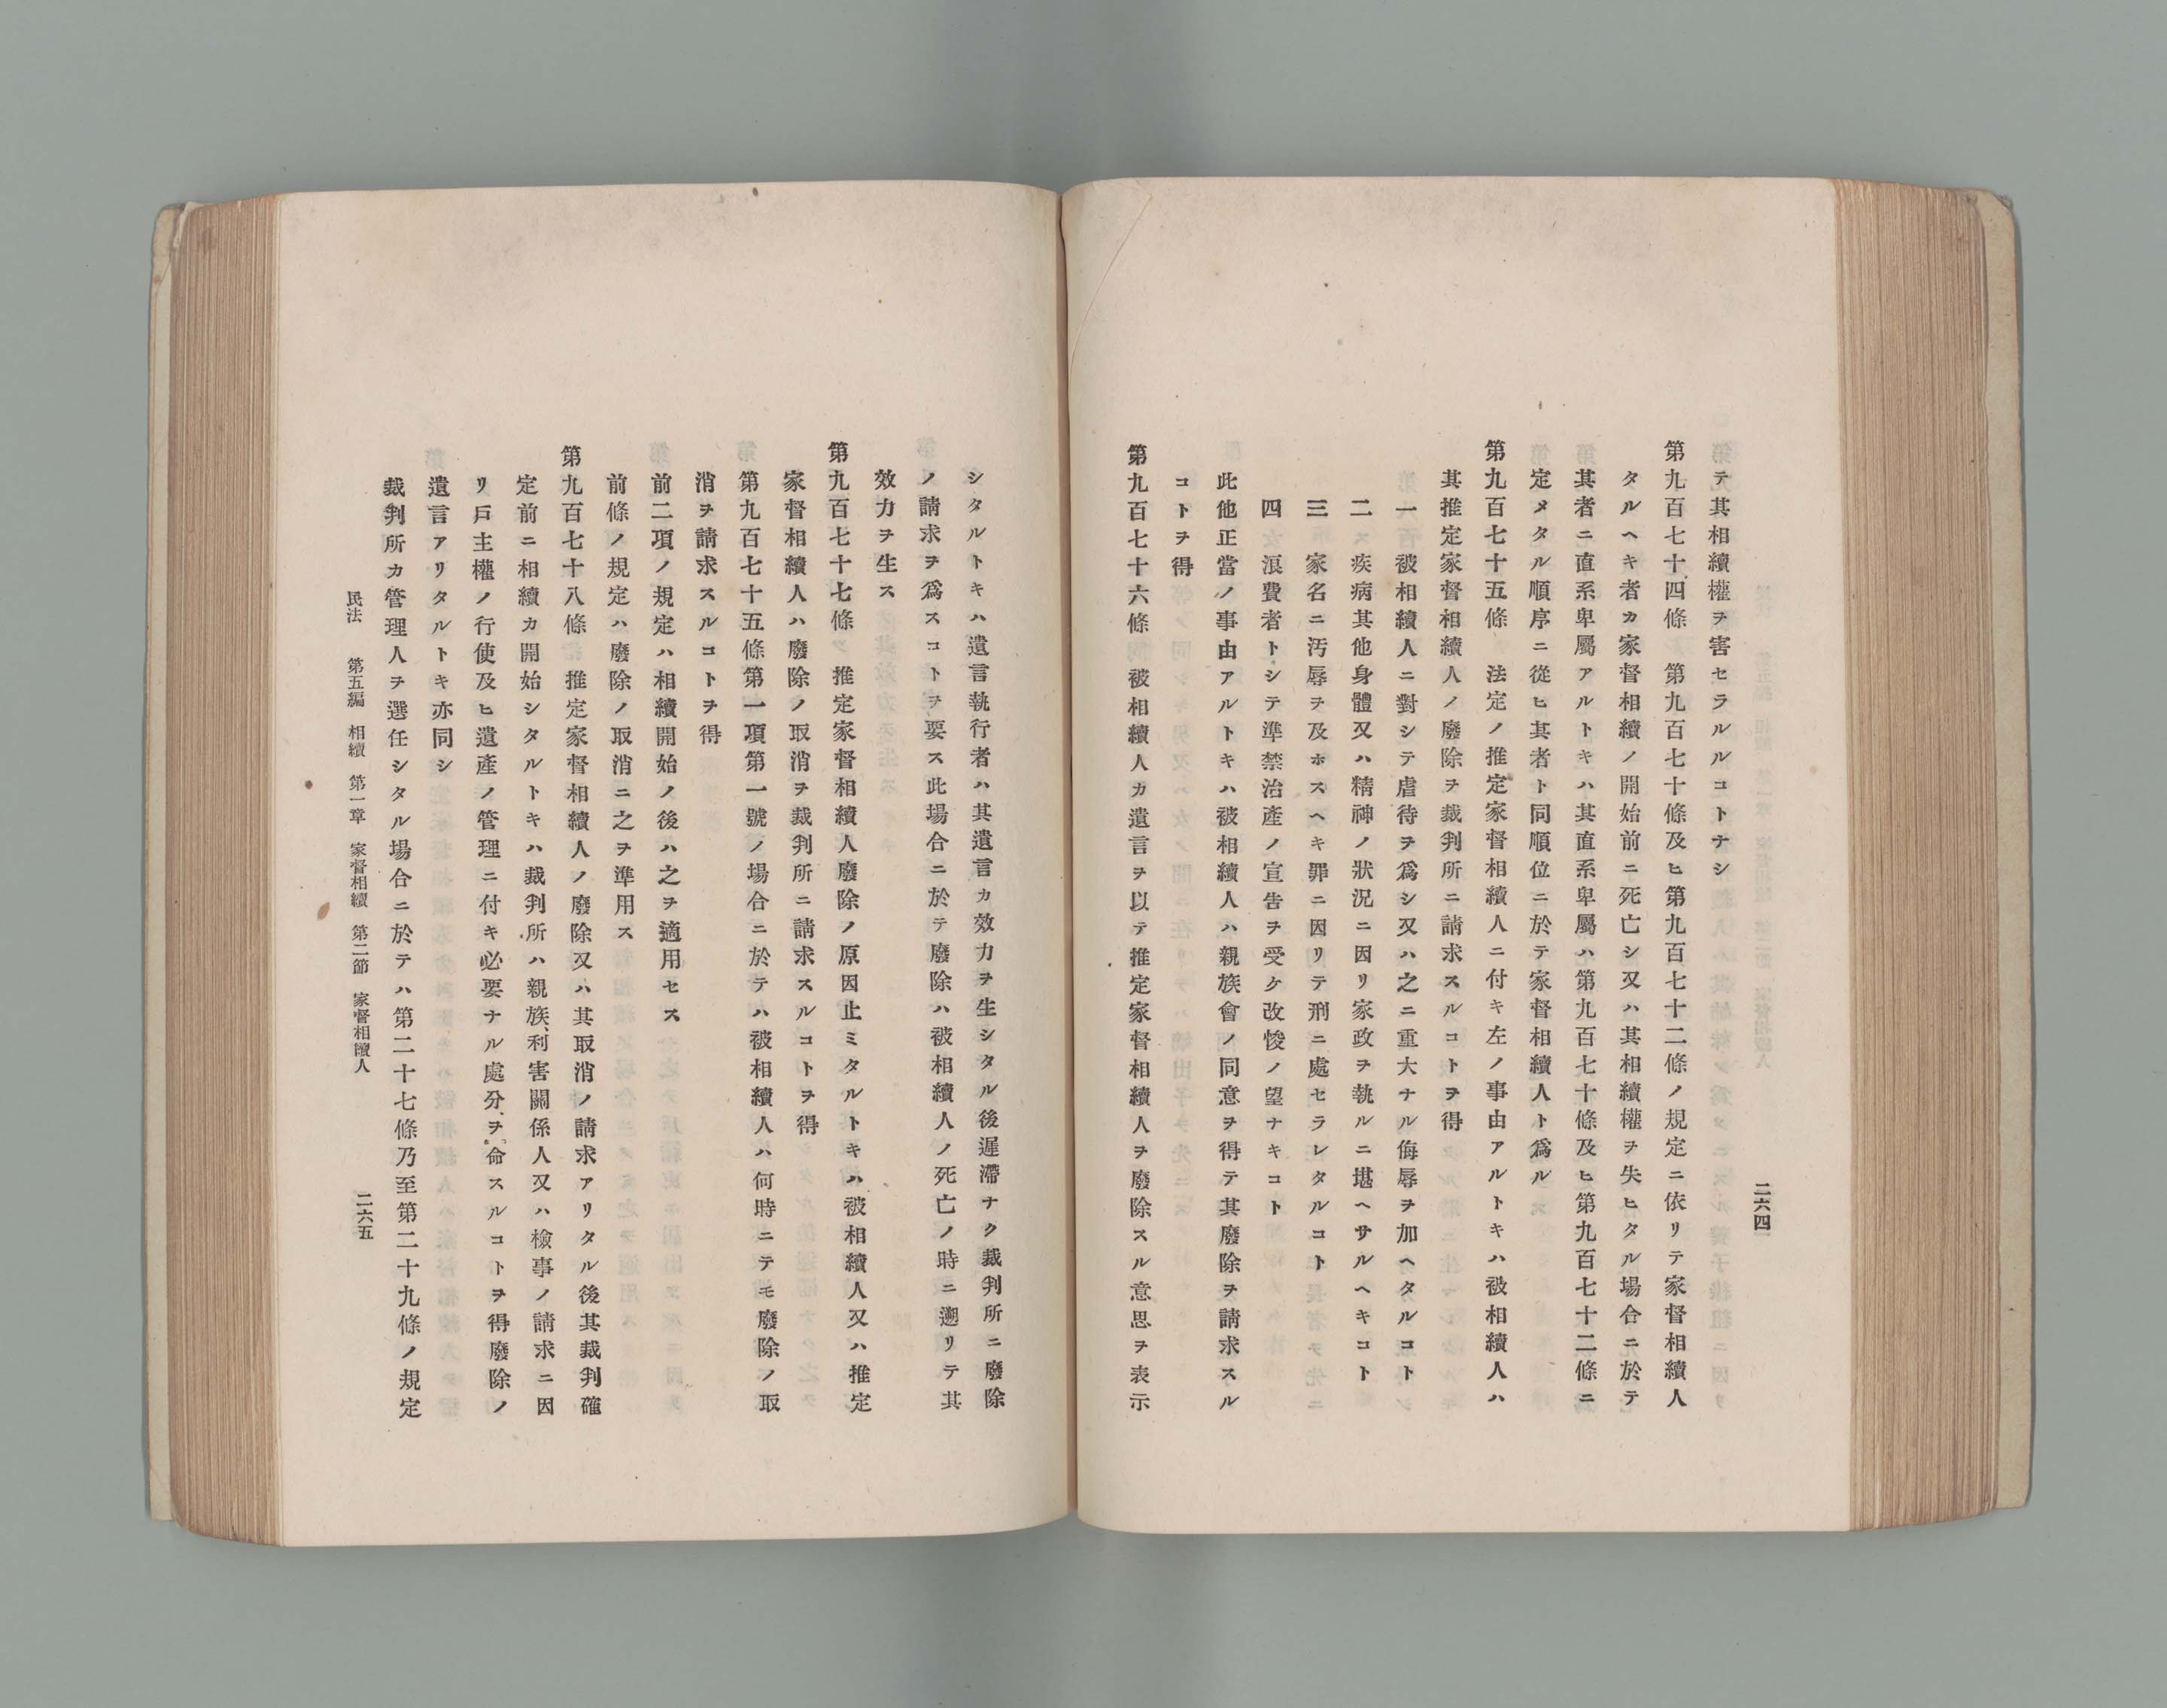 二六四
テ其相續權ヲ害セラルルコトナシ
第九百七十四條　第九百七十條及ヒ第九百七十二條ノ規定ニ依リテ家督相續人
タルヘキ者カ家督相續ノ開始前ニ死亡シ又ハ其相續權ヲ失ヒタル場合ニ於テ
其者ニ直系卑屬アルトキハ其直系卑屬ハ第九百七十條及ヒ第九百七十二條ニ
定メタル順序ニ從ヒ其者ト同順位ニ於テ家督相續人ト爲ル
第九百七十五條　法定ノ推定家督相續人ニ付キ左ノ事由アルトキハ被相續人ハ
其推定家督相續人ノ廢除ヲ裁判所ニ請求スルコトヲ得
一　被相續人ニ對シテ虐待ヲ爲シ又ハ之ニ重大ナル侮辱ヲ加ヘタルコト
二　疾病其他身體又ハ精神ノ狀況ニ因リ家政ヲ執ルニ堪ヘサルヘキコト
三　家名ニ汚辱ヲ及ホスヘキ罪ニ因リテ刑ニ處セラレタルコト
四　浪費者トシテ準禁治產ノ宣告ヲ受ケ改悛ノ望ナキコト
此他正當ノ事由アルトキハ被相續人ハ親族會ノ同意ヲ得テ其廢除ヲ請求スル
コトヲ得
第九百七十六條　被相續人カ遺言ヲ以テ推定家督相續人ヲ廢除スル意思ヲ表示
シタルトキハ遺言執行者ハ其遺言カ效力ヲ生シタル後遲滯ナク裁判所ニ廢除
ノ請求ヲ爲スコトヲ要ス此場合ニ於テ廢除ハ被相續人ノ死亡ノ時ニ遡リテ其
效力ヲ生ス
第九百七十七條　推定家督相續人廢除ノ原因止ミタルトキハ被相續人又ハ推定
家督相續人ハ廢除ノ取消ヲ裁判所ニ請求スルコトヲ得
第九百七十五條第一項第一號ノ場合ニ於テハ被相續人ハ何時ニテモ廢除ノ取
消ヲ請求スルコトヲ得
前二項ノ規定ハ相續開始ノ後ハ之ヲ適用セス
前條ノ規定ハ廢除ノ取消ニ之ヲ準用ス
第九百七十八條　推定家督相續人ノ廢除又ハ其取消ノ請求アリタル後其裁判確
定前ニ相續カ開始シタルトキハ裁判所ハ親族、利害關係人又ハ檢事ノ請求ニ因
リ戶主權ノ行使及ヒ遺產ノ管理ニ付キ必要ナル處分ヲ命スルコトヲ得廢除ノ
遺言アリタルトキ亦同シ
裁判所カ管理人ヲ選任シタル場合ニ於テハ第二十七條乃至第二十九條ノ規定
民法　第五編　相續　第一章　家督相續　第二節　家督相續人　二六五